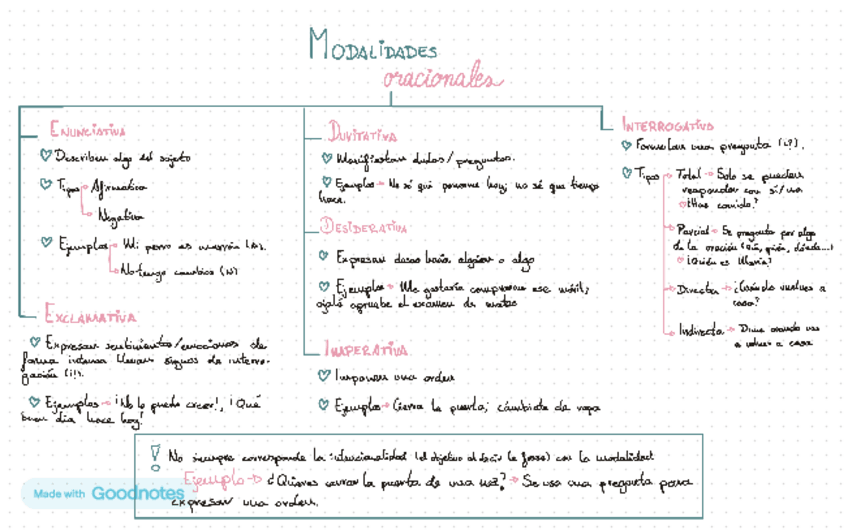 MODALIDADES
oracionales
ENUNCIATIVA
Describen algo del sujeto
Tipos Afirmativa
Negativa
Ejemplos Mi perro es marrón (A).
No tengo cambios (N)
EXCLAMATIVA
Expresan sentimientos/emociones de
forma intensa llevan signos de interro-
gación (¡!).
Ejemplos ¡No lo puedo creer!, ¡Qué
buen día hace hoy!
DUVITATIVA
Manifiestan dudas/preguntas.
Ejemplos No sé qué ponerme hoy; no sé que tiempo
hace.
DESIDERATIVA
Expresan deseo hacia alguien o algo
Ejemplos Me gustaría comprarme ese móvil;
ojalá apruebe el examen de mates
IMPERATIVA
Imponen una orden
Ejemplos Cierra la puerta; cámbiate de ropa
INTERROGATIVA
Formulan una pregunta (¿?).
Tipos Total Solo se pueden
responder con sí/no
¿Has comido?
Parcial Se pregunta por algo
de la oración (Qué, quién, dónde...)
¿Quién es María?
Directa ¿Cuándo vuelves a
casa?
Indirecta Dime cuando vas
a volver a casa
! No siempre corresponde la intencionalidad (el objetivo al decir la frase) con la modalidad
Ejemplo ¿Quieres cerrar la puerta de una vez? Se usa una pregunta para
expresar una orden.
Made with Goodnotes